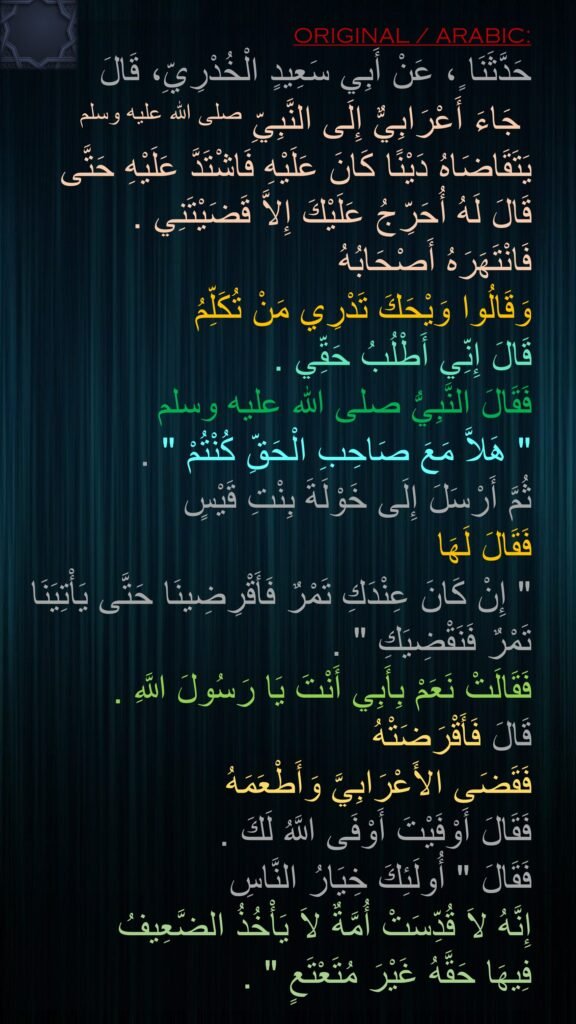 ORIGINAL / ARABIC:
حَدَّثَنَا ٍ، عَنْ أَبِي سَعِيدٍ الْخُدْرِيِّ، قَالَ
جَاءَ أَعْرَابِيٌّ إِلَى النَّبِيِّ صلى الله عليه وسلم
يَتَقَاضَاهُ دَيْنًا كَانَ عَلَيْهِ فَاشْتَدَّ عَلَيْهِ حَتَّى
قَالَ لَهُ أُحَرِّجُ عَلَيْكَ إِلاَّ قَضَيْتَنِي .
فَانْتَهَرَهُ أَصْحَابُهُ
وَقَالُوا وَيْحَكَ تَدْرِي مَنْ تُكَلِّمُ
قَالَ إِنِّي أَطْلُبُ حَقِّي .
فَقَالَ النَّبِيُّ صلى الله عليه وسلم
" هَلاَّ مَعَ صَاحِبِ الْحَقِّ كُنْتُمْ " .
ثُمَّ أَرْسَلَ إِلَى خَوْلَةَ بِنْتِ قَيْسٍ
فَقَالَ لَهَا
" إِنْ كَانَ عِنْدَكِ تَمْرٌ فَأَقْرِضِينَا حَتَّى يَأْتِيَنَا
تَمْرٌ فَنَقْضِيَكِ " .
فَقَالَتْ نَعَمْ بِأَبِي أَنْتَ يَا رَسُولَ اللَّهِ .
قَالَ فَأَقْرَضَتْهُ
فَقَضَى الأَعْرَابِيَّ وَأَطْعَمَهُ
فَقَالَ أَوْفَيْتَ أَوْفَى اللَّهُ لَكَ .
فَقَالَ " أُولَئِكَ خِيَارُ النَّاسِ
إِنَّهُ لاَ قُدِّسَتْ أُمَّةٌ لاَ يَأْخُذُ الضَّعِيفُ
فِيهَا حَقَّهُ غَيْرَ مُتَعْتَعٍ " .